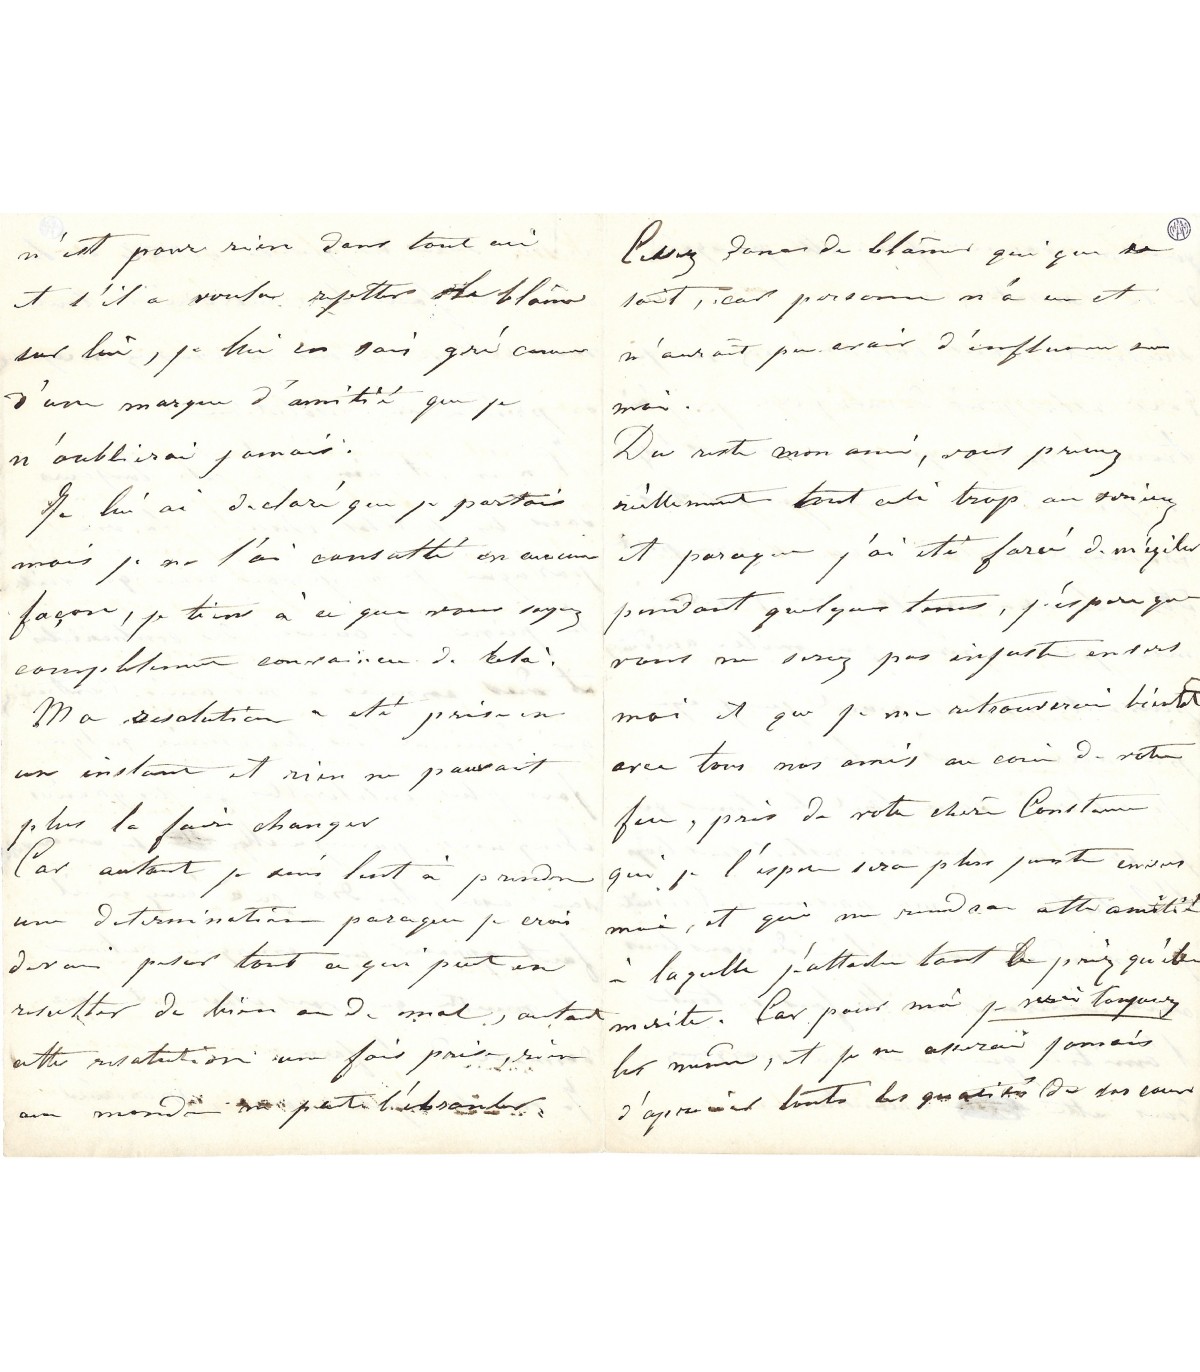 n'est pour rien dans tout ceci
et s'il a voulu rejetter le blâme
sur lui, je lui en sais gré comme
d'une marque d'amitié que je
n'oublierai jamais.
Je lui ai declaré que je partais
mais je ne l'ai consulté en aucune
façon, je tiens à ce que vous soyez
completement convaincu de cela.
Ma resolution a eté prise en
un instant et rien ne pouvait
plus la faire changer
Car autant je suis lent à prendre
une determination paraque je crois
devoir peser tout ce qui peut en
resulter de bien ou de mal, autant
cette resolution une fois prise, rien
au monde ne peut l'ébranler.
Cessez donc de blâmer qui que ce
soit, car personne n'a eu et
n'aurait pu avoir d'influence sur
moi.
Du reste mon ami, vous prenez
réellement tout cela trop au serieux
et paraque j'ai eté forcé de m'exiler
pendant quelques tems, j'espere que
vous ne serez pas injuste envers
moi et que je me retrouverai bientot
avec tous nos amis au coin de votre
feu, près de votre chère Constance
qui je l'espere sera plus juste envers
moi, et qui me rendra cette amitié
à laquelle j'attache tant de prix qu'elle
merite. Car pour moi je serai toujours
le même, et je ne cesserai jamais
d'apprecier toutes les qualités de vos cœurs